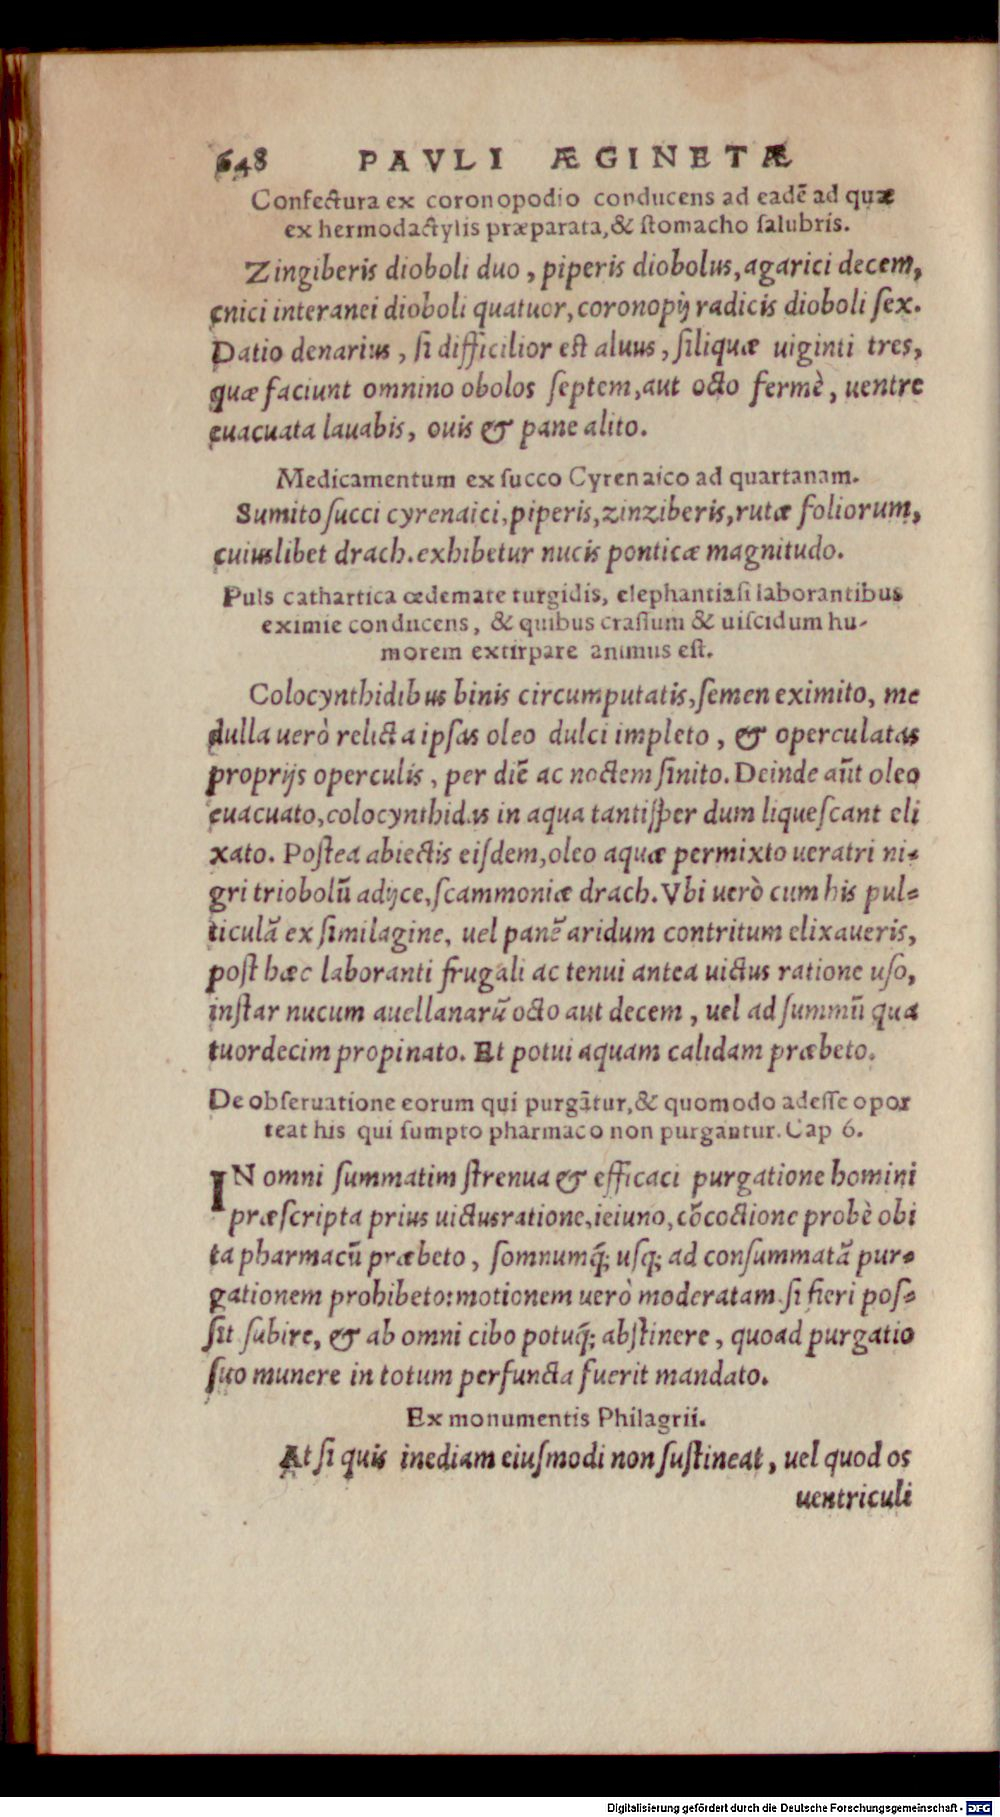 648 PAVLI ÆGINETÆ
Confectura ex coronopodio conducens ad eadē ad quæ
ex hermodactylis præparata, & stomacho salubris.
Zingiberis dioboli duo, piperis diobolus, agarici decem,
cnici interanei dioboli quatuor, coronopij radicis dioboli sex.
Datio denarius, si difficilior est aluus, siliquæ uiginti tres,
quæ faciunt omnino obolos septem, aut octo fermè, uentre
euacuata lauabis, ouis & pane alito.
Medicamentum ex succo Cyrenaico ad quartanam.
Sumito succi cyrenaici, piperis, zinziberis, rutæ foliorum,
cuiuslibet drach. exhibetur nucis ponticæ magnitudo.
Puls cathartica œdemate turgidis, elephantiasi laborantibus
eximie conducens, & quibus crassum & uiscidum hu-
morem extirpare animus est.
Colocynthidibus binis circumputatis, semen eximito, me
dulla uerò relicta ipsas oleo dulci impleto, & operculatas
proprijs operculis, per diē ac noctem sinito. Deinde aūt oleo
euacuato, colocynthidas in aqua tantisper dum liquescant eli
xato. Postea abiectis eisdem, oleo aquæ permixto ueratri ni-
gri triobolū adijce, scammoniæ drach. Vbi uerò cum his pul-
ticulā ex similagine, uel panē aridum contritum elixaueris,
post hæc laboranti frugali ac tenui antea uictus ratione uso,
instar nucum auellanarū octo aut decem, uel ad summū qua
tuordecim propinato. Et potui aquam calidam præbeto.
De obseruatione eorum qui purgātur, & quomodo adesse opor
teat his qui sumpto pharmaco non purgantur. Cap 6.
IN omni summatim strenua & efficaci purgatione homini
præscripta prius uictusratione, ieiuno, cōcoctione probè obi
ta pharmacū præbeto, somnumq́; usq; ad consummatā pur-
gationem prohibeto: motionem uerò moderatam si fieri pos-
sit subire, & ab omni cibo potuq́; abstinere, quoad purgatio
suo munere in totum perfuncta fuerit mandato.
Ex monumentis Philagrii.
At si quis inediam eiusmodi non sustineat, uel quod os
uentriculi
Digitalisierung gefördert durch die Deutsche Forschungsgemeinschaft - DFG